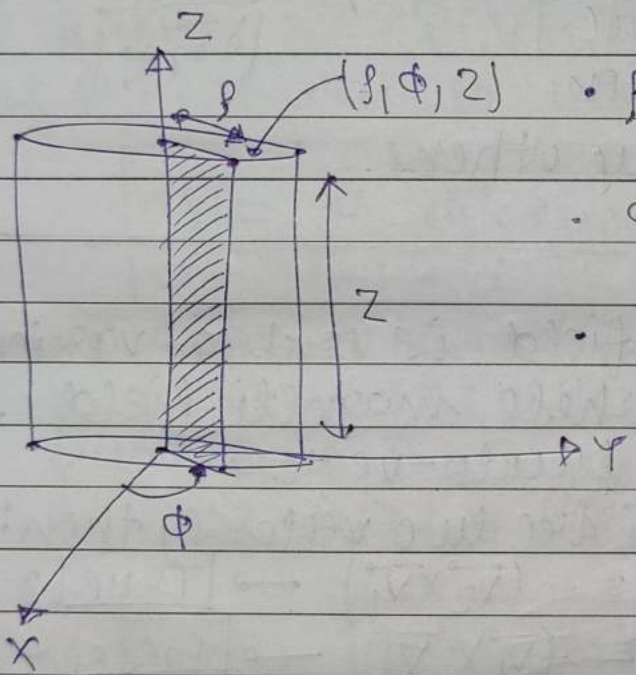 Z
ρ
(ρ, ϕ, Z)
Z
Y
ϕ
X